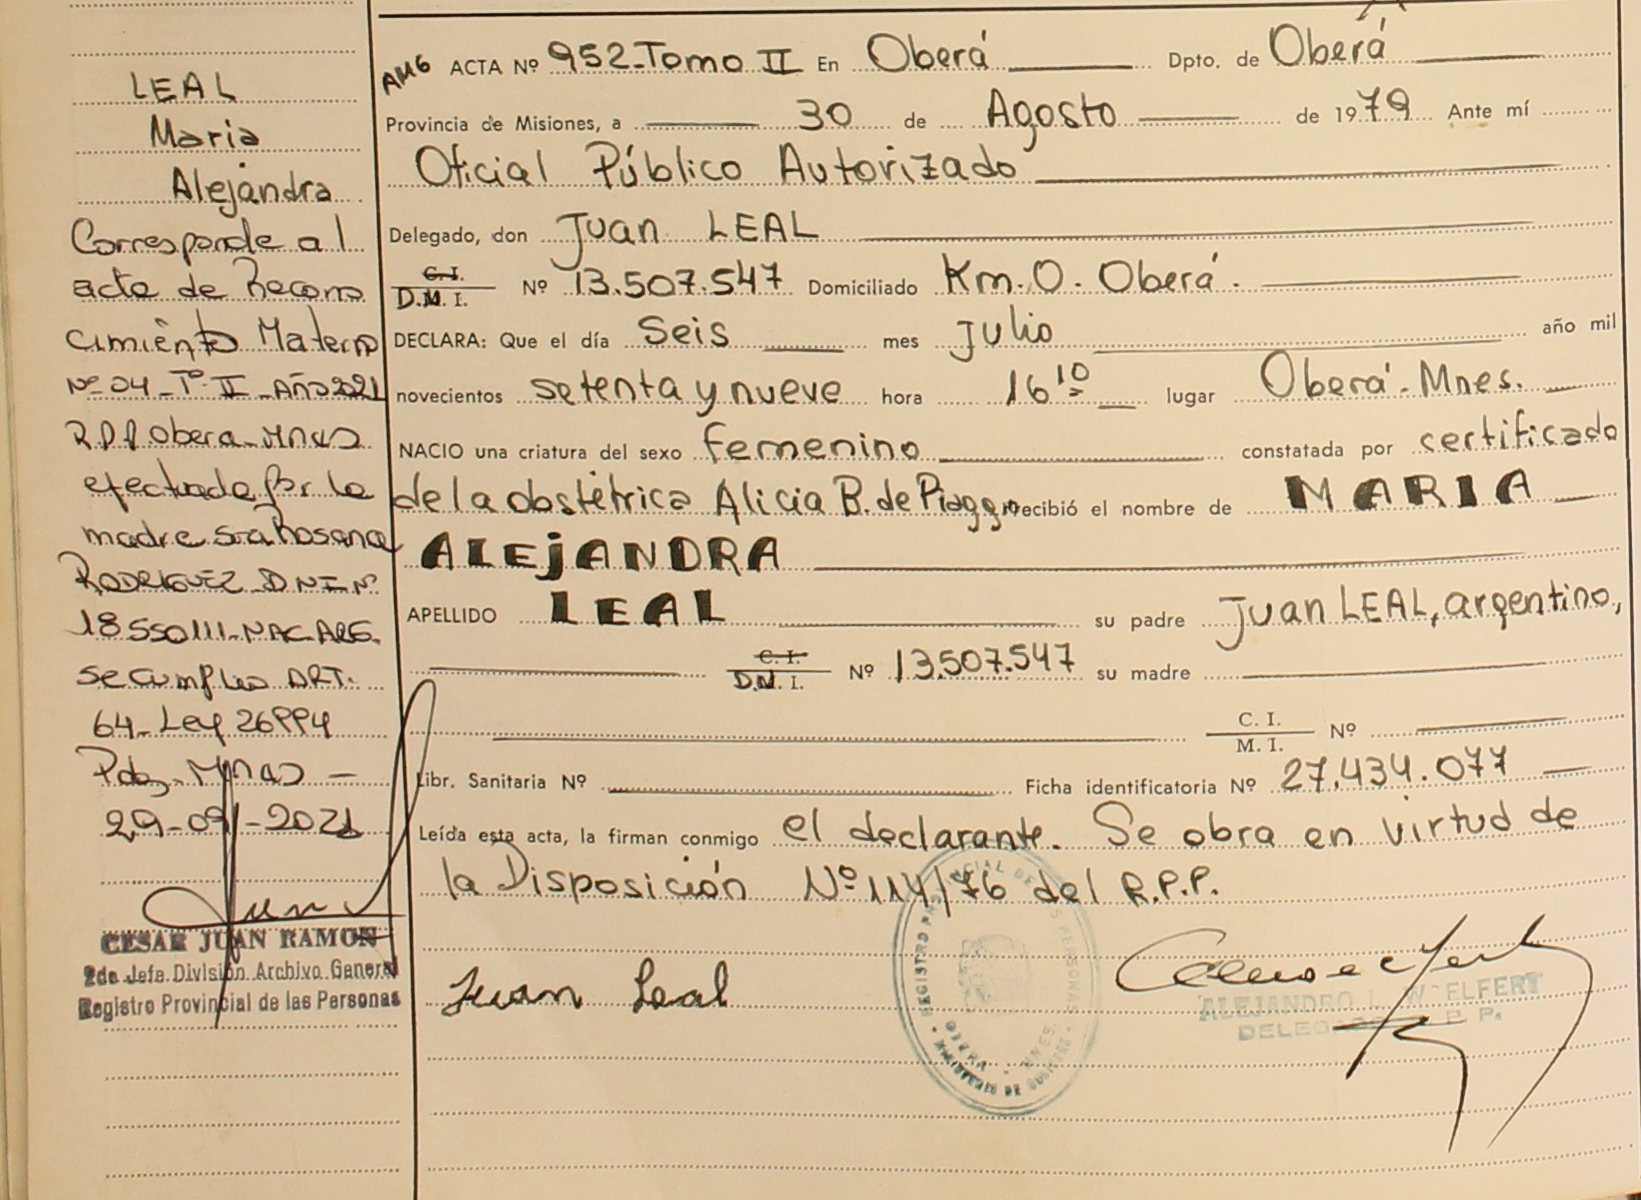 LEAL
Maria
Alejandra
Corresponde al
acta de Recono
cimiento Materno
Nº 04 - Tº II - AÑO 2021
R.P.P Obera - Mnas
efectuada por la
madre Sra Rosana
RODRIGUEZ D N I Nº
18550111 - NAC ARG.
se cumpleo ART.
64 - Ley 26994
Pdas - Mnas -
29-09-2021
CESAR JUAN RAMON
2do. Jefe. División. Archivo General
Registro Provincial de las Personas
AMG ACTA Nº 952 - Tomo II En Oberá Dpto. de Oberá
Provincia de Misiones, a 30 de Agosto de 1979 Ante mí
Oficial Público Autorizado
Delegado, don Juan LEAL
C.I.
D.M.I. Nº 13.507.547 Domiciliado Km. O. Oberá.
DECLARA: Que el día Seis mes Julio año mil
novecientos setenta y nueve hora 16 10 lugar Oberá - Mnes.
NACIO una criatura del sexo femenino constatada por certificado
de la obstétrica Alicia B. de Piaggio recibió el nombre de MARIA
ALEJANDRA
APELLIDO LEAL su padre Juan LEAL, argentino,
C.I.
D.N.I. Nº 13.507.547 su madre
C. I.
M. I. Nº
Libr. Sanitaria Nº Ficha identificatoria Nº 27.434.077
Leída esta acta, la firman conmigo el declarante. Se obra en virtud de
la Disposición Nº 114/76 del R.P.P.
Juan Leal
REGISTRO PROVINCIAL DE LAS PERSONAS
OBERA - MNES.
MINISTERIO DE GOBIERNO
DELEGADO R. P. P.